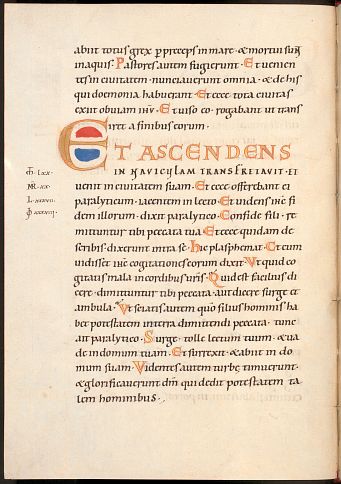 abiit totus grex p praeceps in mare · & mortui sunt
in aquis · Pastores autem fugierunt · Et uenien
tes in ciuitatem · nunciauerunt omnia · & de his
qui doemonia habuerant · Et ecce tota ciuitas
exiit obuiam ihu · Et uiso eo · rogabant ut trans
iret a finibus eorum ·
ET ASCENDENS
IN NAVICULAM TRANSFRETAVIT · ET
uenit in ciuitatem suam · Et ecce offerebant ei
paralyticum · iacentem in lecto · Et uidens ihc fi
dem illorum · dixit paralytico · Confide fili · re
mittuntur tibi peccata tua · Et ecce quidam de
scribis · dixerunt intra se · hic plasphemat · Et cum
uidisset ihc cogitationes eorum dixit · Ut quid co
gitatis mala in cordibus uris · Quid est facilius di
cere · dimittuntur tibi peccata · aut dicere surge et
ambula · Ut sciatis autem quo filius hominis ha
bet potestatem in terra dimittendi peccata · tunc
ait paralytico · Surge · tolle lectum tuum · & ua
de in domum tuam · Et surrexit · & abiit in do
mum suam · Videntes autem turbe · timuerunt ·
& glorificauerunt dm qui dedit potestatem ta
lem hominibus ·